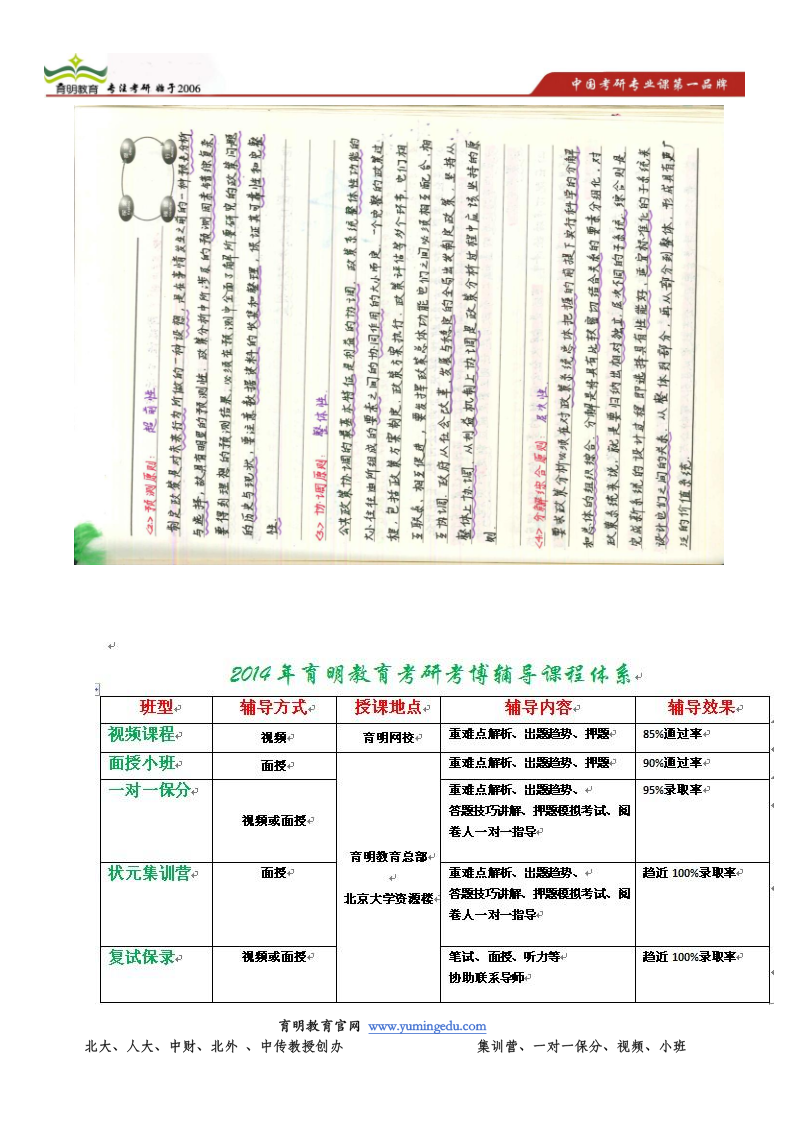 育明教育
专注考研 始于2006
中国考研专业课第一品牌
<2> 预测原则: 超前性
制定政策是对未来行为所做的一种设想，是在事情发生之前的一种预先分析
与选择，故具有明显的预测性。政策分析中所涉及的预测因素错综复杂，
要得到理想的预测结果，必须在预测中全面了解所要研究的政策问题
的历史与现状，要注意数据资料的收集和整理，保证其可靠性和完整
性。
<3> 协调原则: 整体性
公共政策协调的最基本特征是利益的协调，政策系统整体性功能的
大小往往由所组成的要素之间的协同作用的大小而定，一个完整的政策过
程，包括政策方案制定、政策方案执行、政策评估等多个环节，它们相
互联系，相互促进，要发挥政策总体功能它们之间必须相互配合，相
互协调。政府从社会改革、发展与稳定的全局出发制定政策，坚持从
整体上协调，从利益机制上协调是政策分析过程中应该坚持的原
则。
<4> 分解综合原则 层次性
要求政策分析必须在对政策系统总体把握的前提下实行科学的分解
和总体的组织综合。分解是将具有比较密切结合关系的要素分组化，对
政策系统来说，就是要归纳出相对独立、层次不同的子系统。综合则是
完成新系统的设计过程即选择具有性能好、适宜标准化的子系统来
设计它们之间的关系，从整体到部分，再从部分到整体，形成具有更广
泛的价值系统。
2014年育明教育考研考博辅导课程体系
班型 辅导方式 授课地点 辅导内容 辅导效果
视频课程 视频 育明网校 重难点解析、出题趋势、押题 85%通过率
面授小班 面授 重难点解析、出题趋势、押题 90%通过率
一对一保分 重难点解析、出题趋势、 95%录取率
视频或面授 答题技巧讲解、押题模拟考试、阅
卷人一对一指导
育明教育总部
北京大学资源楼
状元集训营 面授 重难点解析、出题趋势、 趋近 100%录取率
答题技巧讲解、押题模拟考试、阅
卷人一对一指导
复试保录 视频或面授 笔试、面授、听力等 趋近 100%录取率
协助联系导师
育明教育官网 www.yumingedu.com
北大、人大、中财、北外 、中传教授创办 集训营、一对一保分、视频、小班